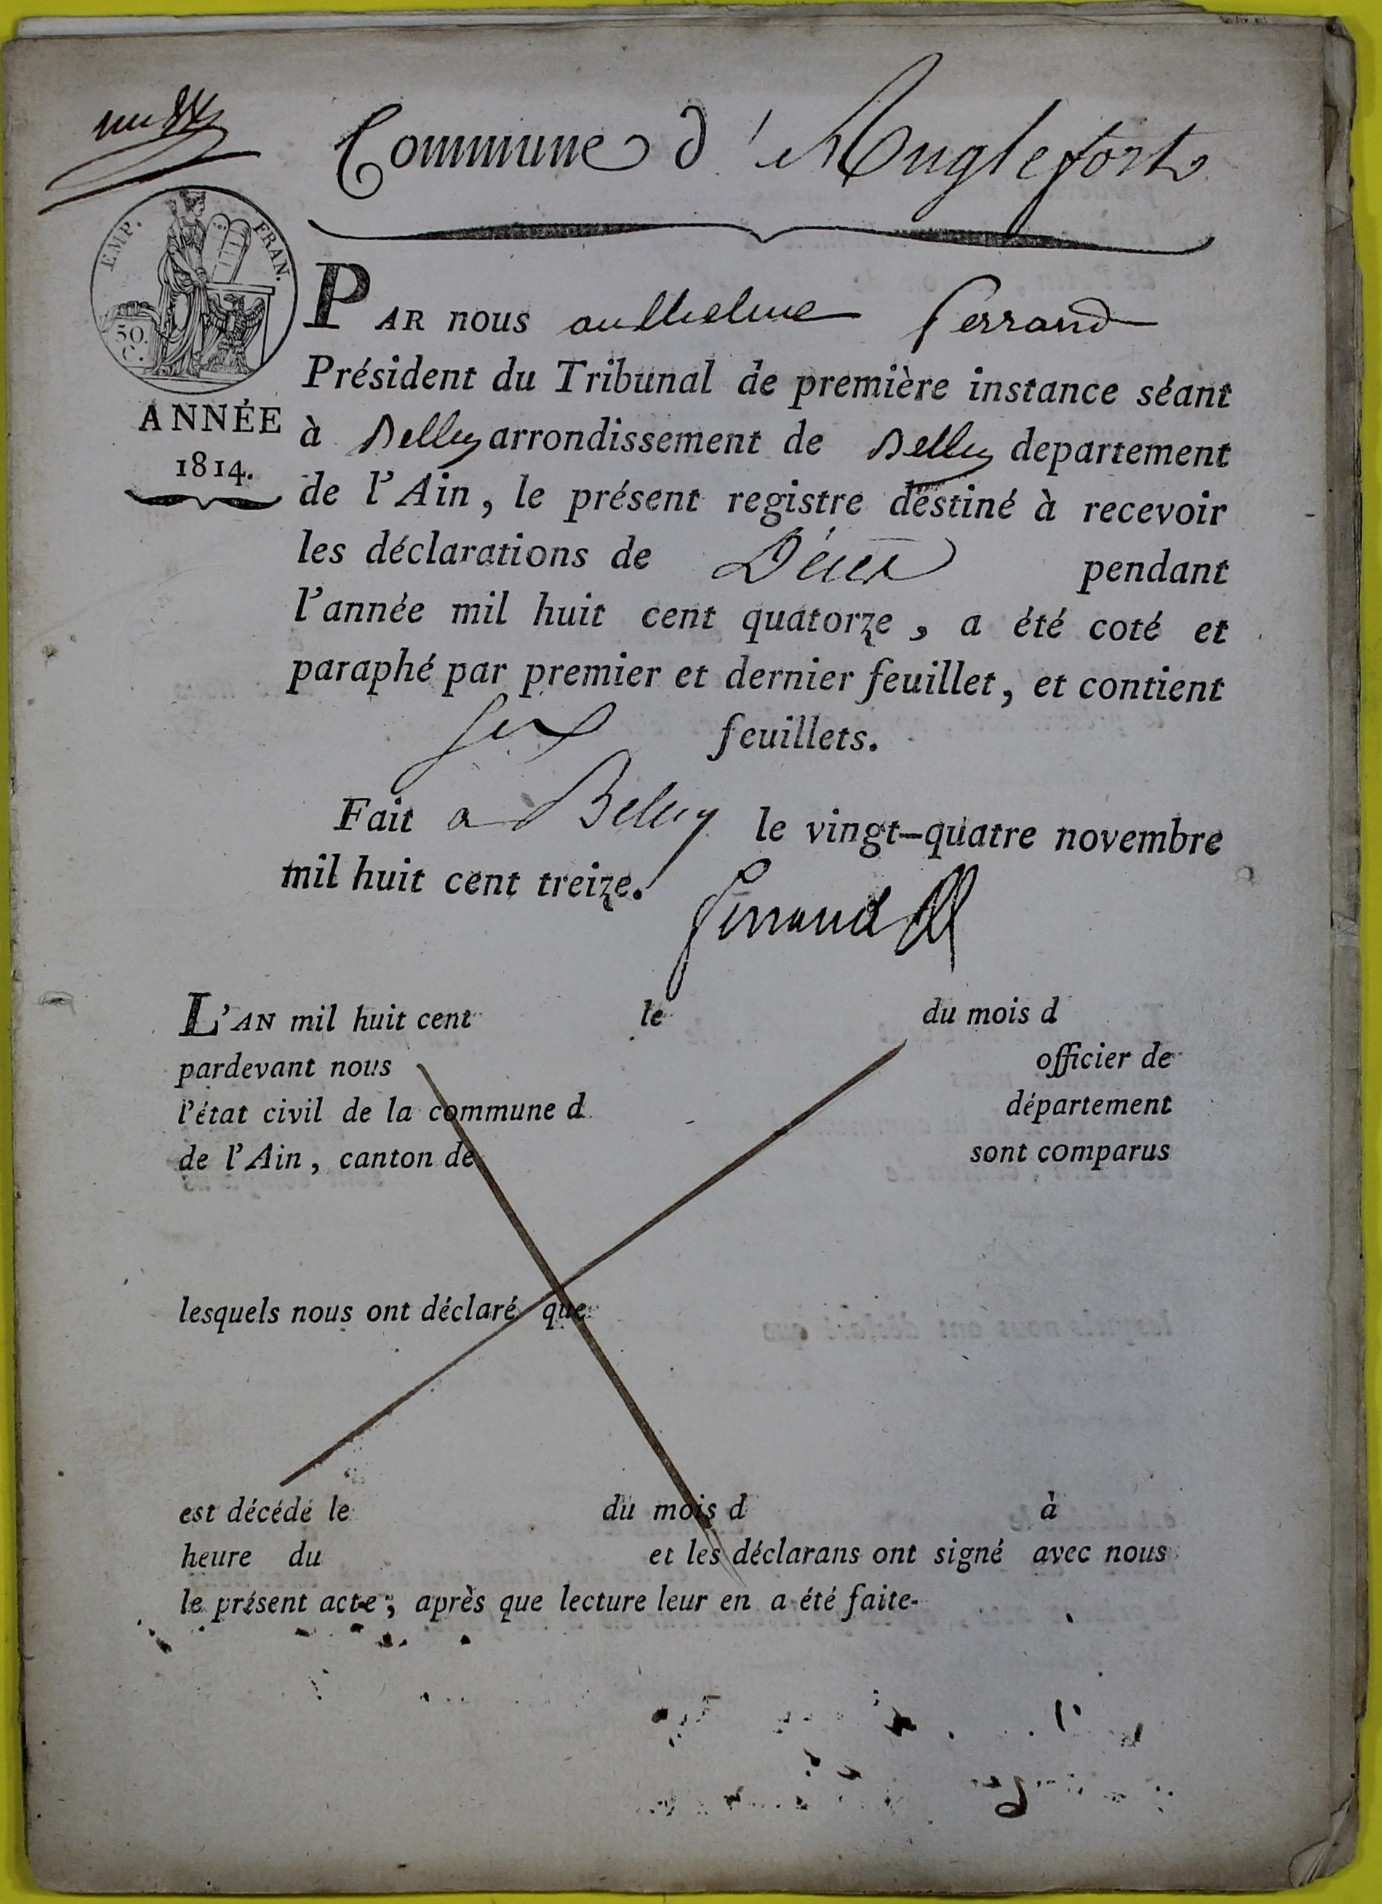 Commune d'Anglefort
EMP. FRAN.
50.
C.
ANNÉE
1814.
PAR nous anthelme ferrand
Président du Tribunal de première instance séant
à Belley arrondissement de Belley departement
de l'Ain, le présent registre destiné à recevoir
les déclarations de Décès pendant
l'année mil huit cent quatorze, a été coté et
paraphé par premier et dernier feuillet, et contient
six feuillets.
Fait a Belley le vingt-quatre novembre
mil huit cent treize.
ferrand
L'AN mil huit cent le du mois d
pardevant nous officier de
l'état civil de la commune d département
de l'Ain, canton de sont comparus
lesquels nous ont déclaré que
est décédé le du mois d à
heure du et les déclarans ont signé avec nous
le présent acte, après que lecture leur en a été faite.